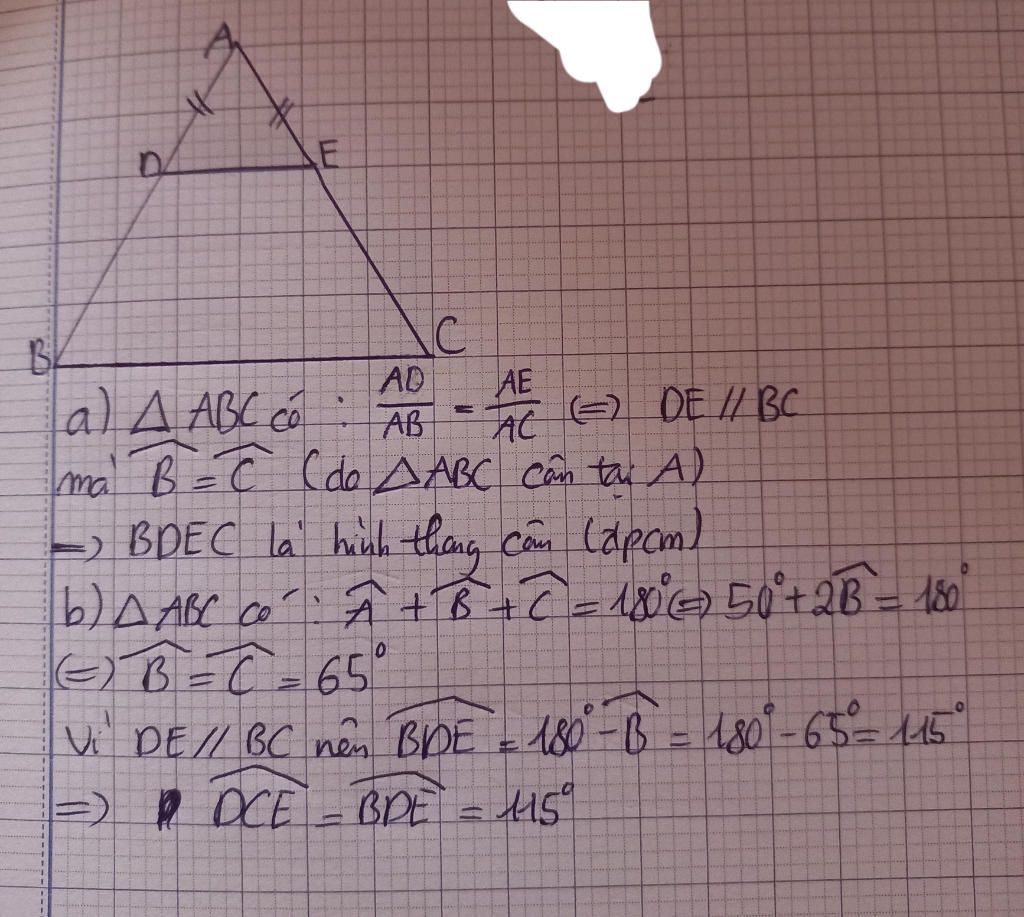 A
D
E
B
C
a) △ ABC có : AD/AB = AE/AC (=) DE // BC
mà B̂ = Ĉ (do △ ABC cân tại A)
=) BDEC là hình thang cân (đpcm)
b) △ ABC có : Â + B̂ + Ĉ = 180° (=) 50° + 2B̂ = 180°
(=) B̂ = Ĉ = 65°
Vì DE // BC nên \widehat{BDE} = 180° - B̂ = 180° - 65° = 115°
=) \widehat{DCE} = \widehat{BDE} = 115°